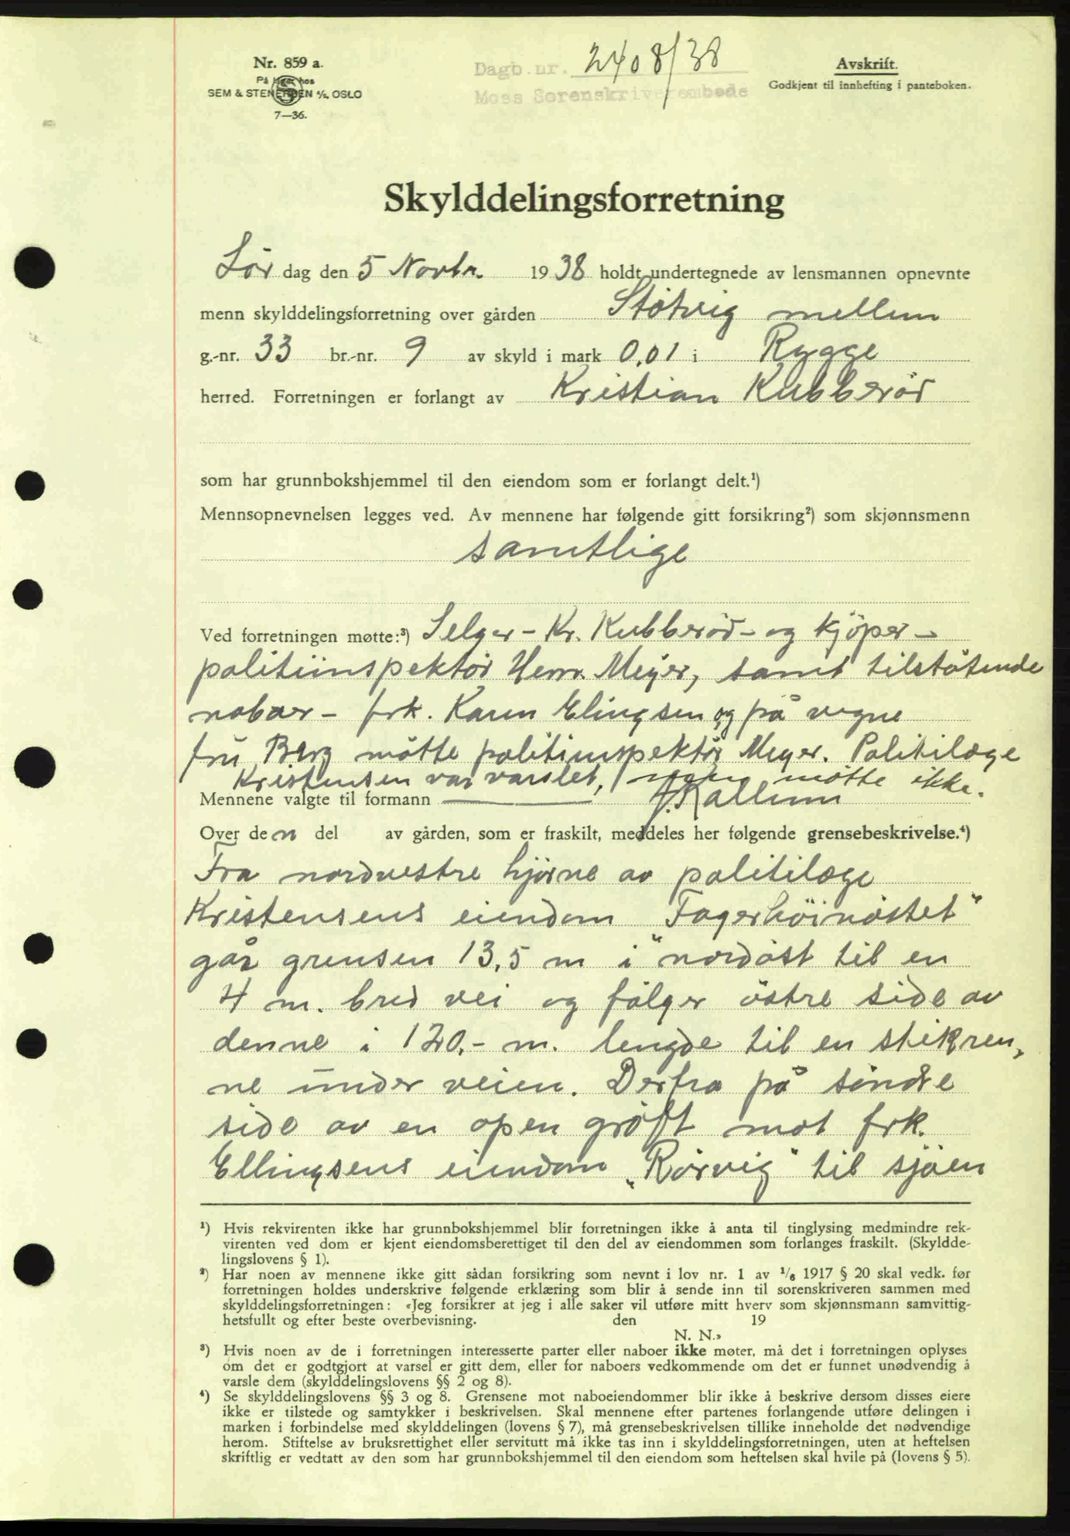 Nr. 859 a.
På lager hos
SEM & STENERSEN A/S, OSLO
7—36.
Dagb.nr. 2408/38
Moss Sorenskriverembede
Avskrift.
Godkjent til innhefting i panteboken.
Skylddelingsforretning
Lör dag den 5 Novbr. 1938 holdt undertegnede av lensmannen opnevnte
menn skylddelingsforretning over gården Støtvig mellem
g.-nr. 33 br.-nr. 9 av skyld i mark 0,01 i Rygge
herred. Forretningen er forlangt av Kristian Kubberöd
som har grunnbokshjemmel til den eiendom som er forlangt delt.¹)
Mennsopnevnelsen legges ved. Av mennene har følgende gitt forsikring²) som skjønnsmenn
samtlige
Ved forretningen møtte:³) Selger - Kr. Kubberöd - og kjöper -
politiinspektör Herm. Meyer, samt tilstötende
naboer - frk. Karen Elingsen og på vegne
fru Berg mötte politiinspektör Meyer. Politilæge
Kristensen var varslet, men mötte ikke.
Mennene valgte til formann J. Kallum
Over den del av gården, som er fraskilt, meddeles her følgende grensebeskrivelse.⁴)
Fra nordvestre hjörne av politilæge
Kristensens eiendom "Fagerhöinöstet"
går grensen 13,5 m i nordöst til en
4 m. bred vei og fölger östre side av
denne i 120,- m. lengde til en stikren,
ne under veien. Derfra på söndre
side av en open gröft mot frk.
Ellingsens eiendom "Rörvig" til sjöen
¹) Hvis rekvirenten ikke har grunnbokshjemmel blir forretningen ikke å anta til tinglysing medmindre rek-
virenten ved dom er kjent eiendomsberettiget til den del av eiendommen som forlanges fraskilt. (Skyldde-
lingslovens § 1).
²) Har noen av mennene ikke gitt sådan forsikring som nevnt i lov nr. 1 av ¹/₆ 1917 § 20 skal vedk. før
forretningen holdes underskrive følgende erklæring som blir å sende inn til sorenskriveren sammen med
skylddelingsforretningen: «Jeg forsikrer at jeg i alle saker vil utføre mitt hverv som skjønnsmann samvittig-
hetsfullt og efter beste overbevisning. den 19
N. N.»
³) Hvis noen av de i forretningen interesserte parter eller naboer ikke møter, må det i forretningen oplyses
om det er godtgjort at varsel er gitt dem, eller for naboers vedkommende om det er funnet unødvendig å
varsle dem (skylddelingslovens §§ 2 og 8).
⁴) Se skylddelingslovens §§ 3 og 8. Grensene mot naboeiendommer blir ikke å beskrive dersom disses eiere
ikke er tilstede og samtykker i beskrivelsen. Skal mennene efter partenes forlangende utføre delingen i
marken i forbindelse med skylddelingen (lovens § 7), må grensebeskrivelsen tillike inneholde det nødvendige
herom. Stiftelse av bruksrettighet eller servitutt må ikke tas inn i skylddelingsforretningen, uten at heftelsen
skriftlig er vedtatt av den som har grunnbokshjemmel til den eiendom som heftelsen skal hvile på (lovens § 5).